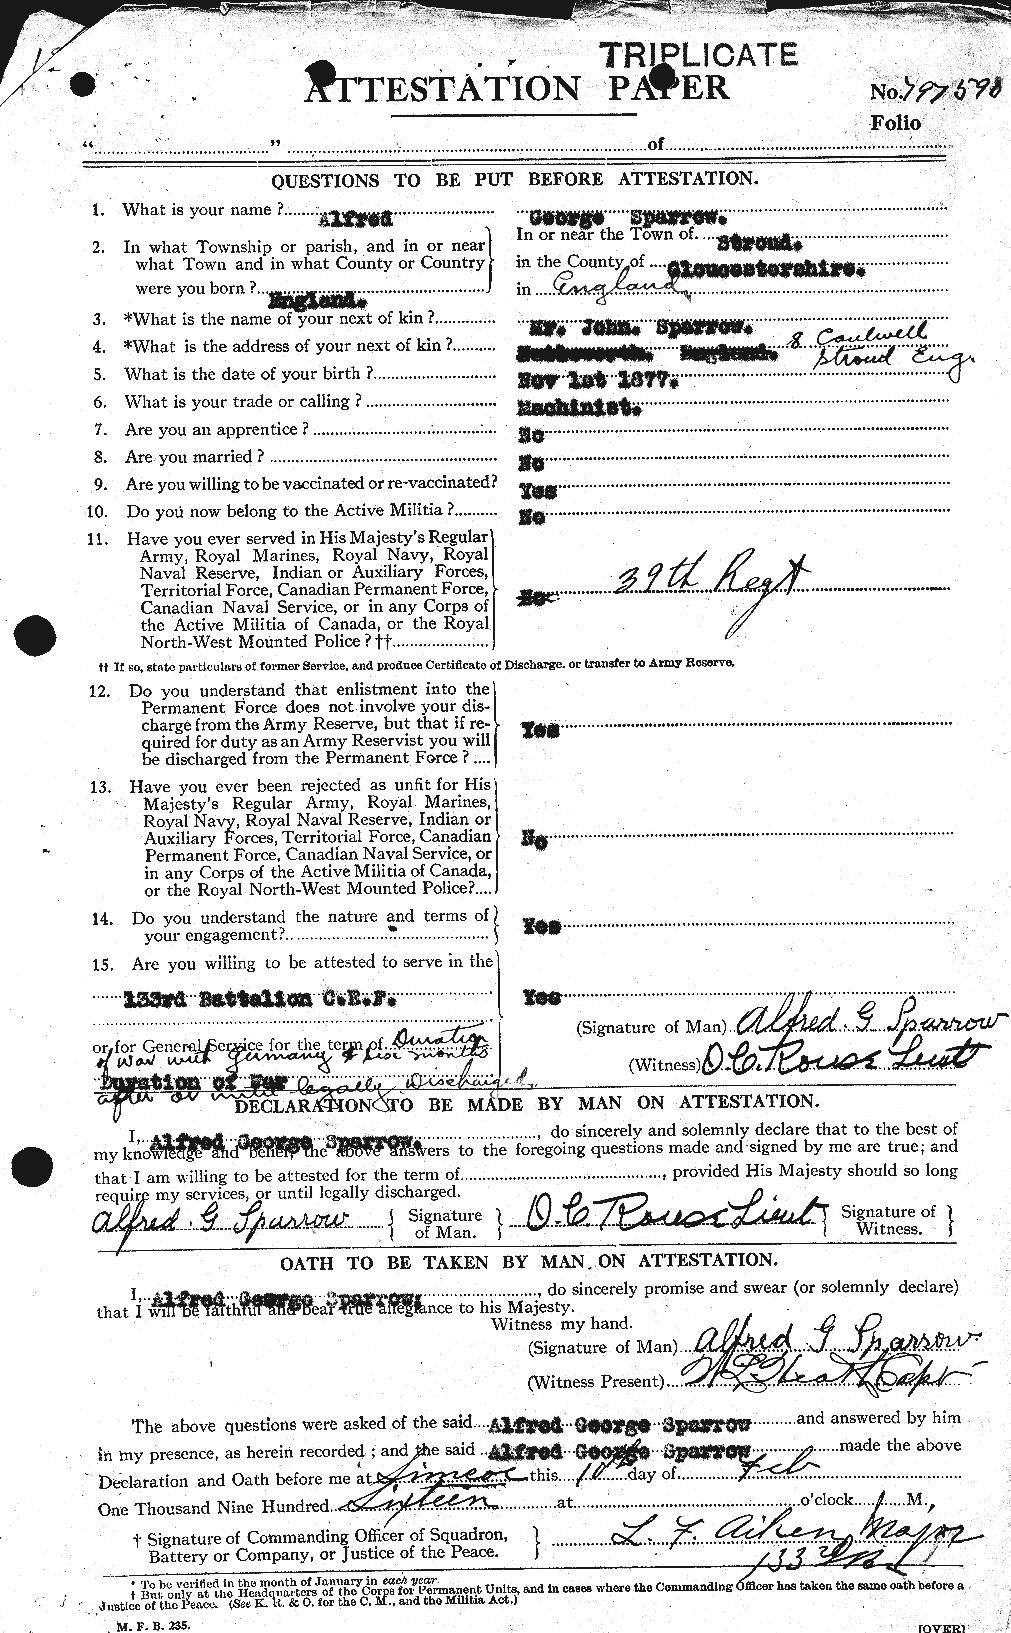 TRIPLICATE
ATTESTATION PAPER
No. 797590
Folio
"..........." ........... of...........
QUESTIONS TO BE PUT BEFORE ATTESTATION.
1. What is your name ?...... Alfred George Sparrow.
2. In what Township or parish, and in or near what Town and in what County or Country were you born ?... England.
In or near the Town of... Stroud.
in the County of... Gloucestershire.
in... England
3. *What is the name of your next of kin ?...... Mr. John. Sparrow.
4. *What is the address of your next of kin ?...... England. 8 Caulwell
Stroud Eng.
5. What is the date of your birth ?...... Nov 1st 1877.
6. What is your trade or calling ?...... Machinist.
7. Are you an apprentice ?...... No
8. Are you married ?...... No
9. Are you willing to be vaccinated or re-vaccinated? Yes
10. Do you now belong to the Active Militia ?...... No
11. Have you ever served in His Majesty's Regular
Army, Royal Marines, Royal Navy, Royal
Naval Reserve, Indian or Auxiliary Forces,
Territorial Force, Canadian Permanent Force,
Canadian Naval Service, or in any Corps of
the Active Militia of Canada, or the Royal
North-West Mounted Police ? ††......
No. 39th Regt
†† If so, state particulars of former Service, and produce Certificate of Discharge. or transfer to Army Reserve.
12. Do you understand that enlistment into the
Permanent Force does not involve your dis-
charge from the Army Reserve, but that if re-
quired for duty as an Army Reservist you will
be discharged from the Permanent Force ? ....
Yes
13. Have you ever been rejected as unfit for His
Majesty's Regular Army, Royal Marines,
Royal Navy, Royal Naval Reserve, Indian or
Auxiliary Forces, Territorial Force, Canadian
Permanent Force, Canadian Naval Service, or
in any Corps of the Active Militia of Canada,
or the Royal North-West Mounted Police?....
No
14. Do you understand the nature and terms of
your engagement?......
Yes
15. Are you willing to be attested to serve in the
133rd Battalion C.E.F.
Yes
(Signature of Man).. Alfred. G Sparrow
or for General Service for the term of Duration
of war with Germany & six months
(Witness) O. C. Rouse Lieut
Duration of War legally Discharged.
after or until
DECLARATION TO BE MADE BY MAN ON ATTESTATION.
I, Alfred George Sparrow. ......, do sincerely and solemnly declare that to the best of
my knowledge and belief, the above answers to the foregoing questions made and signed by me are true; and
that I am willing to be attested for the term of......, provided His Majesty should so long
require my services, or until legally discharged.
Alfred. G Sparrow { Signature of Man. } O. C. Rouse Lieut { Signature of Witness. }
OATH TO BE TAKEN BY MAN ON ATTESTATION.
I, Alfred George Sparrow. ......, do sincerely promise and swear (or solemnly declare)
that I will be faithful and bear true allegiance to his Majesty.
Witness my hand.
(Signature of Man)... Alfred G Sparrow
(Witness Present)... Capt
The above questions were asked of the said Alfred George Sparrow ......and answered by him
in my presence, as herein recorded ; and the said Alfred George Sparrow ......made the above
Declaration and Oath before me at Simcoe this 10th day of Feb
One Thousand Nine Hundred Sixteen at......o'clock M.,
† Signature of Commanding Officer of Squadron,
Battery or Company, or Justice of the Peace.
L. F. Aiken, Major
133rd Bn
* To be verified in the month of January in each year.
† But only at the Headquarters of the Corps for Permanent Units, and in cases where the Commanding Officer has taken the same oath before a
Justice of the Peace. (See K. R. & O. for the C. M., and the Militia Act.)
M. F. B. 235.
[OVER]